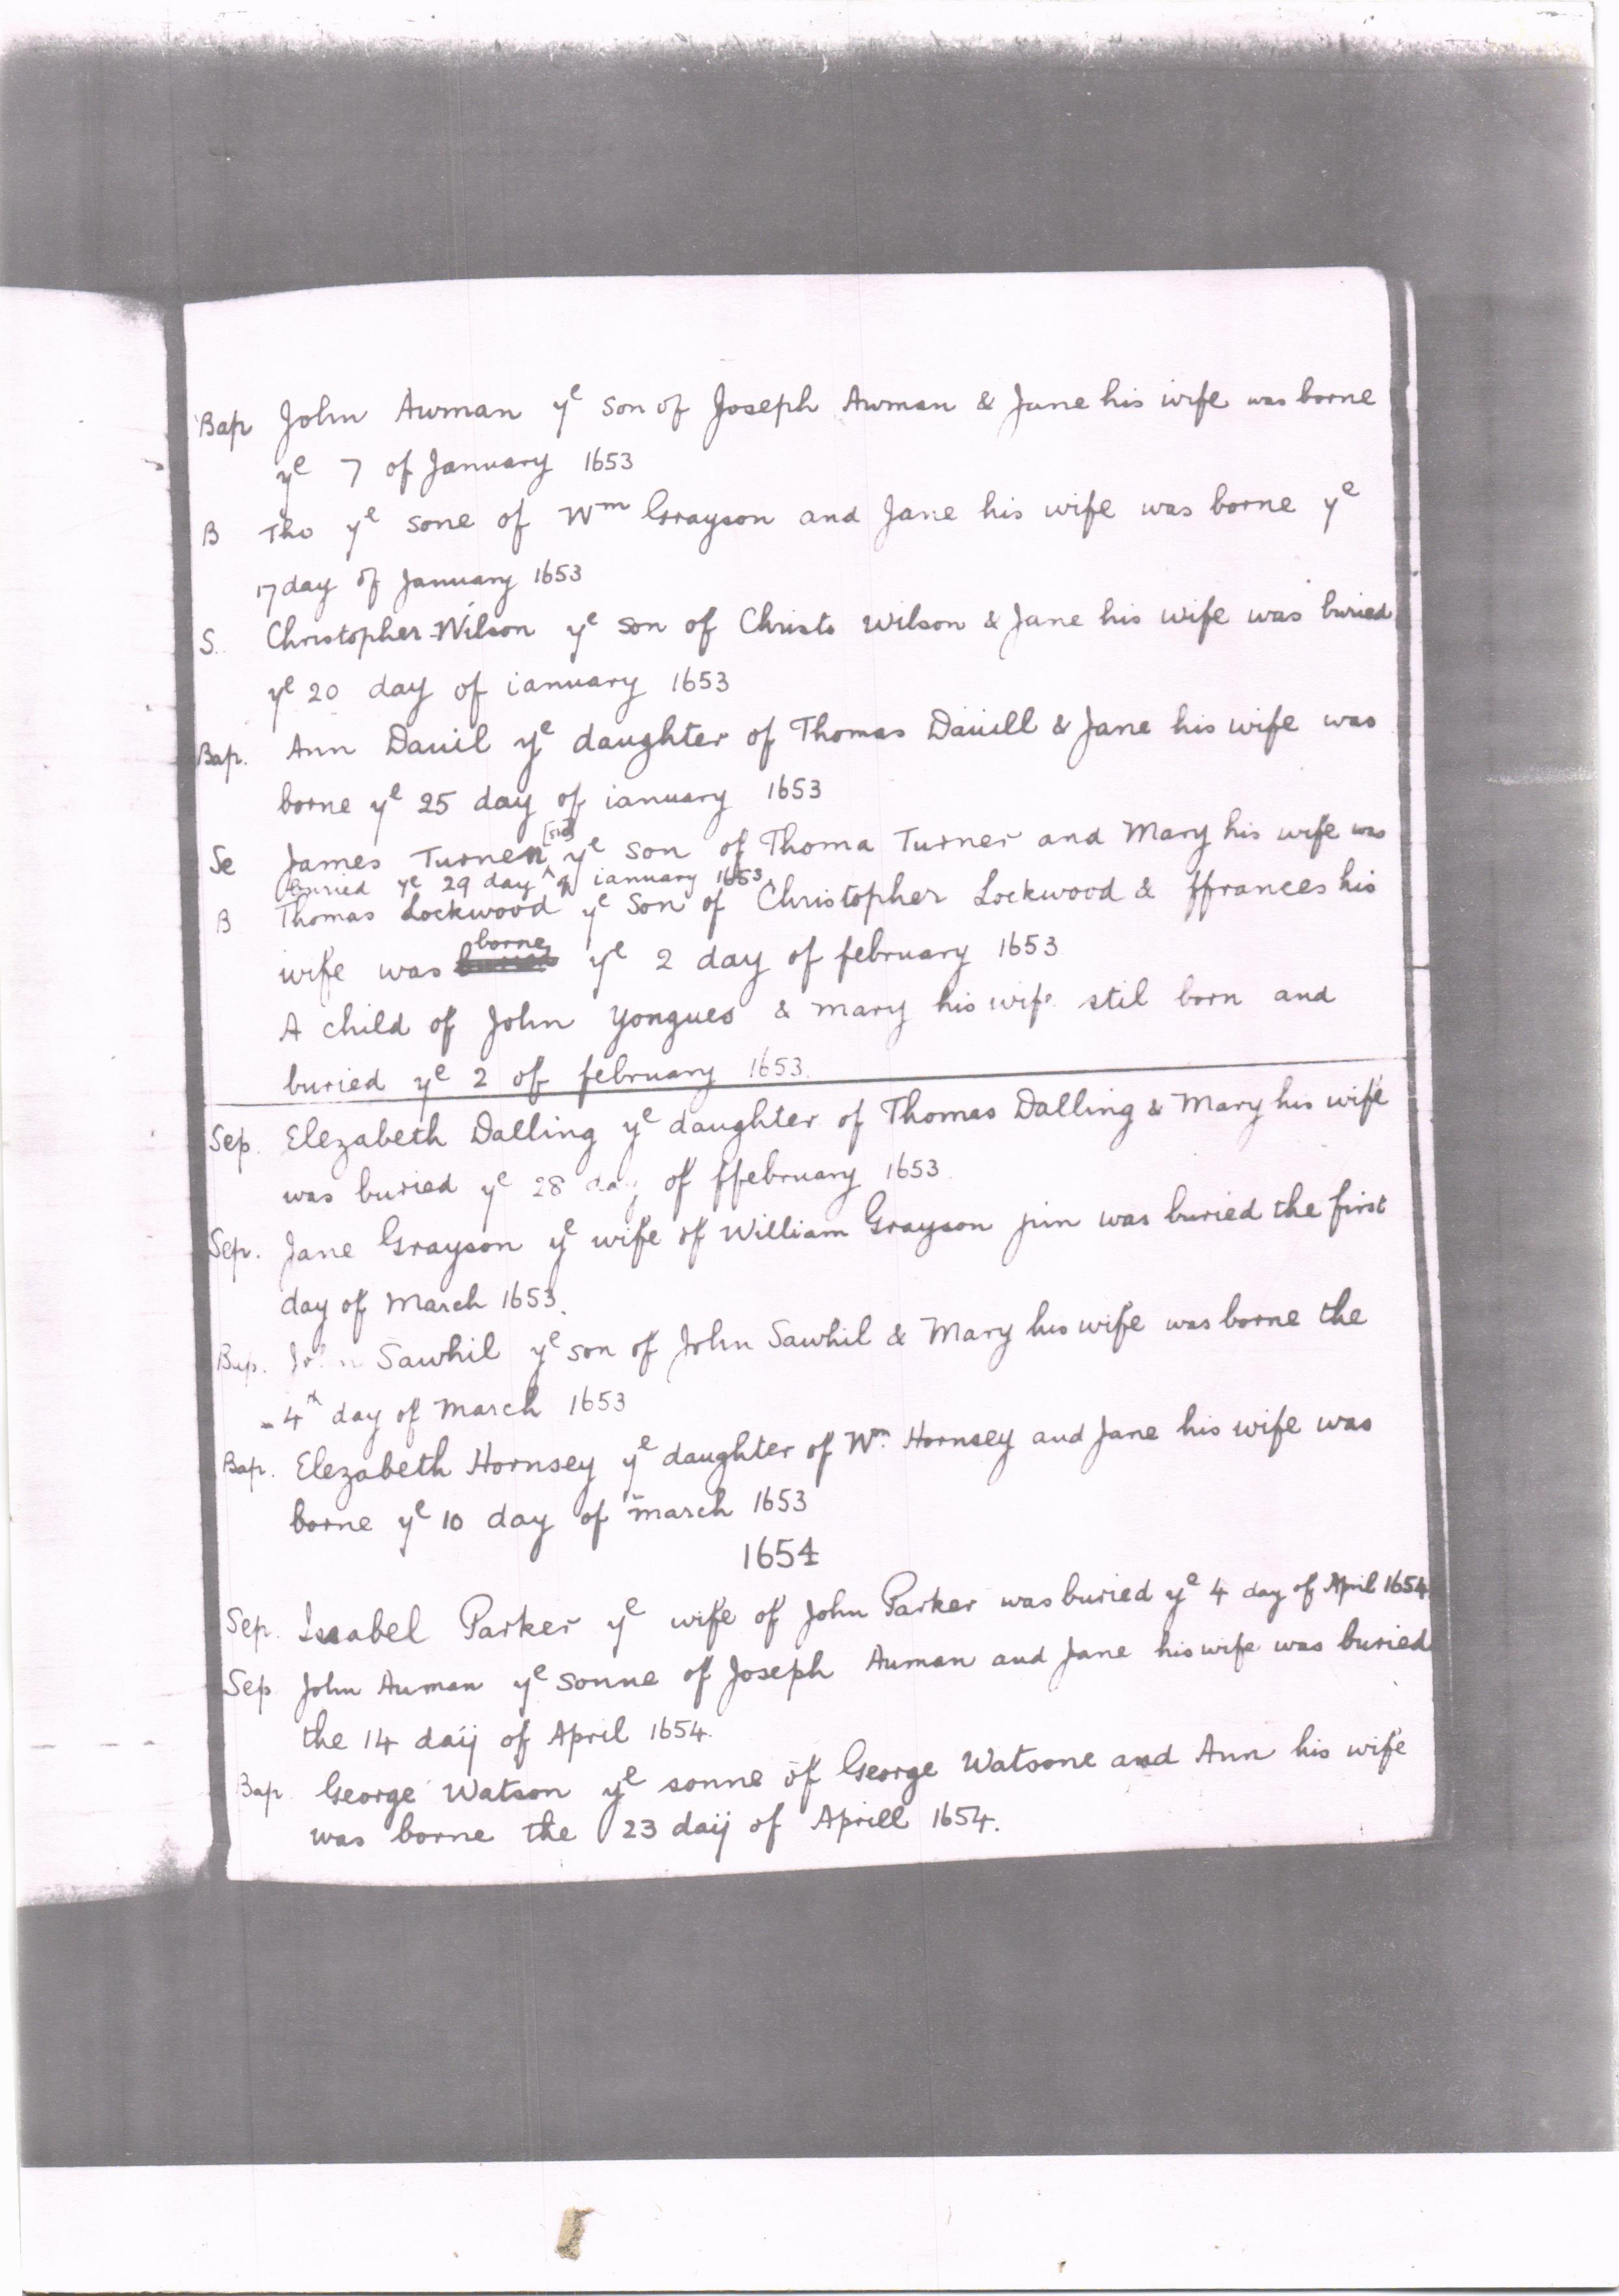 Bap John Awman yᵉ son of Joseph Awman & Jane his wife was borne
yᵉ 7 of January 1653
B Tho yᵉ sone of Wᵐ Grayson and Jane his wife was borne yᵉ
17 day of January 1653
S. Christopher Wilson yᵉ son of Christo Wilson & Jane his wife was buried
yᵉ 20 day of ianuary 1653
Bap. Ann Dauil yᵉ daughter of Thomas Dauill & Jane his wife was
borne yᵉ 25 day of ianuary 1653
[sic]
Se James Turnen yᵉ son of Thoma Turner and Mary his wife was
buried yᵉ 29 day ^ of ianuary 1653.
B Thomas Lockwood yᵉ Son of Christopher Lockwood & ffrances his
wife was borne yᵉ 2 day of february 1653
A child of John Yongues & mary his wife stil born and
buried yᵉ 2 of february 1653.
Sep. Elezabeth Dalling yᵉ daughter of Thomas Dalling & Mary his wife
was buried yᵉ 28 day of ffebruary 1653
Sep. Jane Grayson yᵉ wife of William Grayson jun was buried the first
day of March 1653.
Bap. John Sawhil yᵉ son of John Sawhil & Mary his wife was borne the
4ᵗʰ day of March 1653
Bap. Elezabeth Hornsey yᵉ daughter of Wᵐ. Hornsey and Jane his wife was
borne yᵉ 10 day of march 1653
1654
Sep. Isabel Parker yᵉ wife of John Parker was buried yᵉ 4 day of April 1654
Sep John Auman yᵉ sonne of Joseph Auman and Jane his wife was buried
the 14 daij of April 1654.
Bap George Watson yᵉ sonne of George Watsone and Ann his wife
was borne the 23 daij of Aprill 1654.